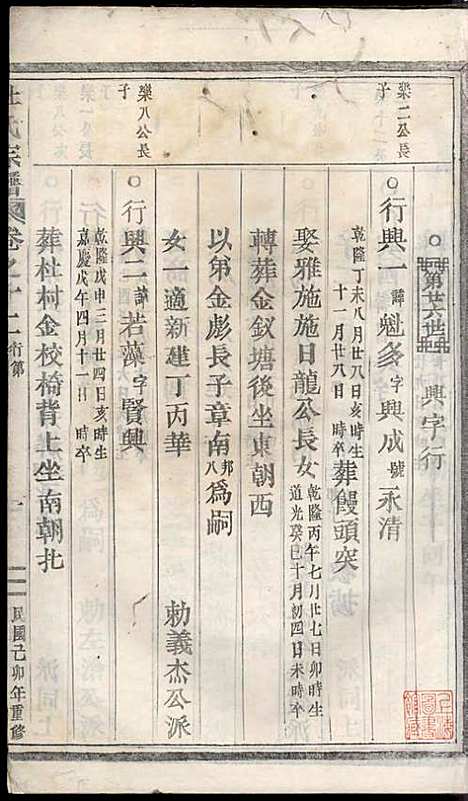 第廿六世 興字行
樂二公長子
行興一 諱魁多 字興成 號永清
乾隆丁未八月廿八日亥時生
十一月廿八日 時卒
葬饅頭突
娶雅施施日龍公長女
乾隆丙午七月廿七日卯時生
道光癸巳十月初四日未時卒
轉葬金釵塘後坐東朝西
以弟金彪長子章南邦八爲嗣
女一適新建丁丙華
勅義杰公派
樂八公長子
行興二 諱若藻 字賢興
乾隆戊申三月廿四日亥時生
嘉慶戊午四月十一日 時卒
葬杜村金校椅背上坐南朝北
杜氏宗譜 卷之十二 行第 一
民國己卯年重修